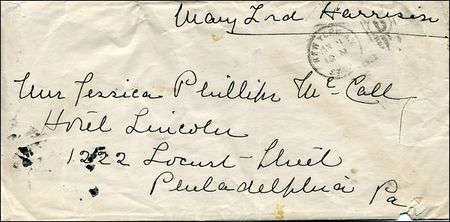 Mary Lord Harrison
NEW YORK
Mrs Jessica Phillips McCall
Hotel Lincoln
1222 Locust Street
Philadelphia Pa